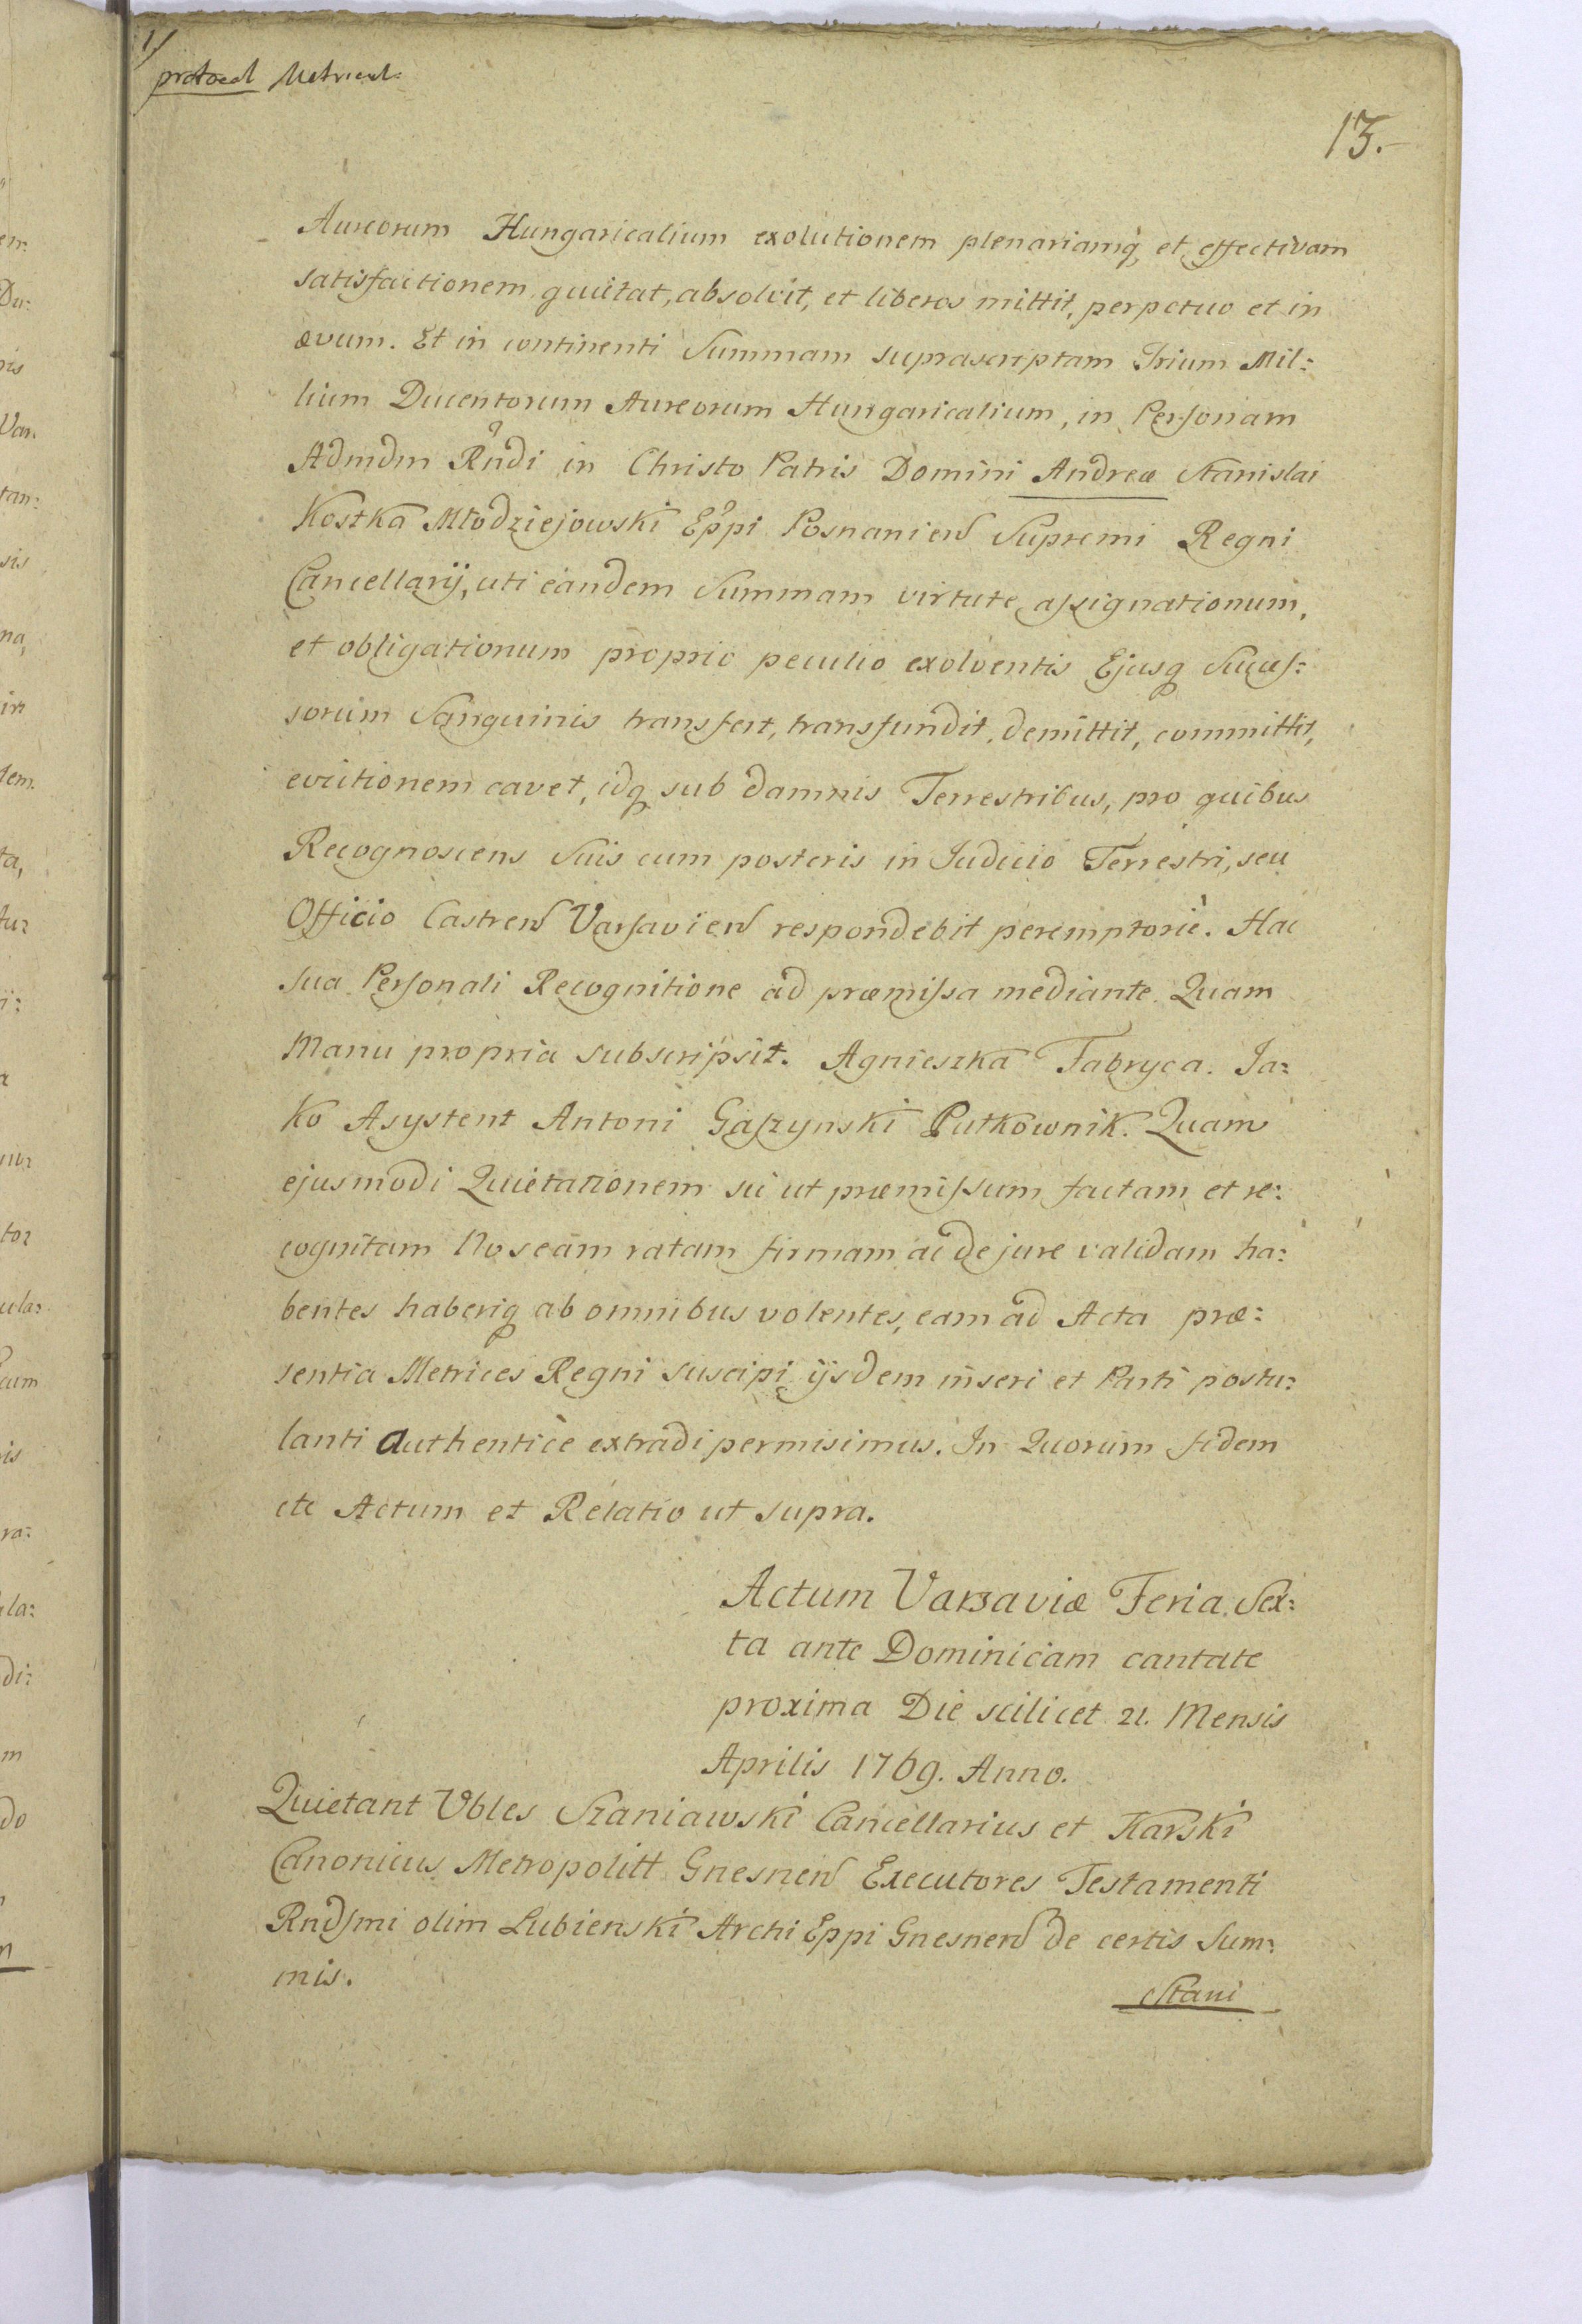 1/
protocol Metricul:
13.
Aureorum Hungaricalium exolutionem plenariamq et effectivam
satisfactionem quietat, absolvit, et liberos mittit, perpetuo et in
ævum. Et in continenti Summam suprascriptam Trium Mil:
lium Ducentorum Aureorum Hungaricalium, in Personam
Admdm Rndi in Christo Patris Domini Andreæ Stanislai
Kostka Młodziejowski Eppi Posnanien Supremi Regni
Cancellarij, uti eandem Summam virtute assignationum,
et obligationum proprio peculio exolventis Ejusq Succes:
sorum Sanguinis transfert, transfundit, demittit, committit,
evictionem cavet, idq sub damnis Terrestribus, pro quibus
Recognoscens Suis cum posteris in Iudicio Terrestri, seu
Officio Castren Varsavien respondebit peremptorie. Hac
sua Personali Recognitione ad præmissa mediante. Quam
Manu propria subscripsit. Agnieszka Fabryca. Ja:
ko Asystent Antoni Gaszynski Putkownik. Quam
ejusmodi Quietationem sic ut præmissum factam et re:
cognitam Nos eam ratam firmam ac de jure validam ha:
bentes haberiq ab omnibus volentes, eam ad Acta præ:
sentia Metrices Regni suscipi ijsdem inseri et Parti postu:
lanti authentice extradi permisimus. In Quorum fidem
etc Actum et Relatio ut supra.
Actum Varsaviæ Feria Sex:
ta ante Dominicam cantate
proxima Die scilicet 21. Mensis
Aprilis 1769. Anno.
Quietant Vbles Szaniawski Cancellarius et Karski
Canonicus Metropolitt Gnesnen Executores Testamenti
Rndsmi olim Lubienski Archi Eppi Gnesnen de certis Sum:
mis.
Stani